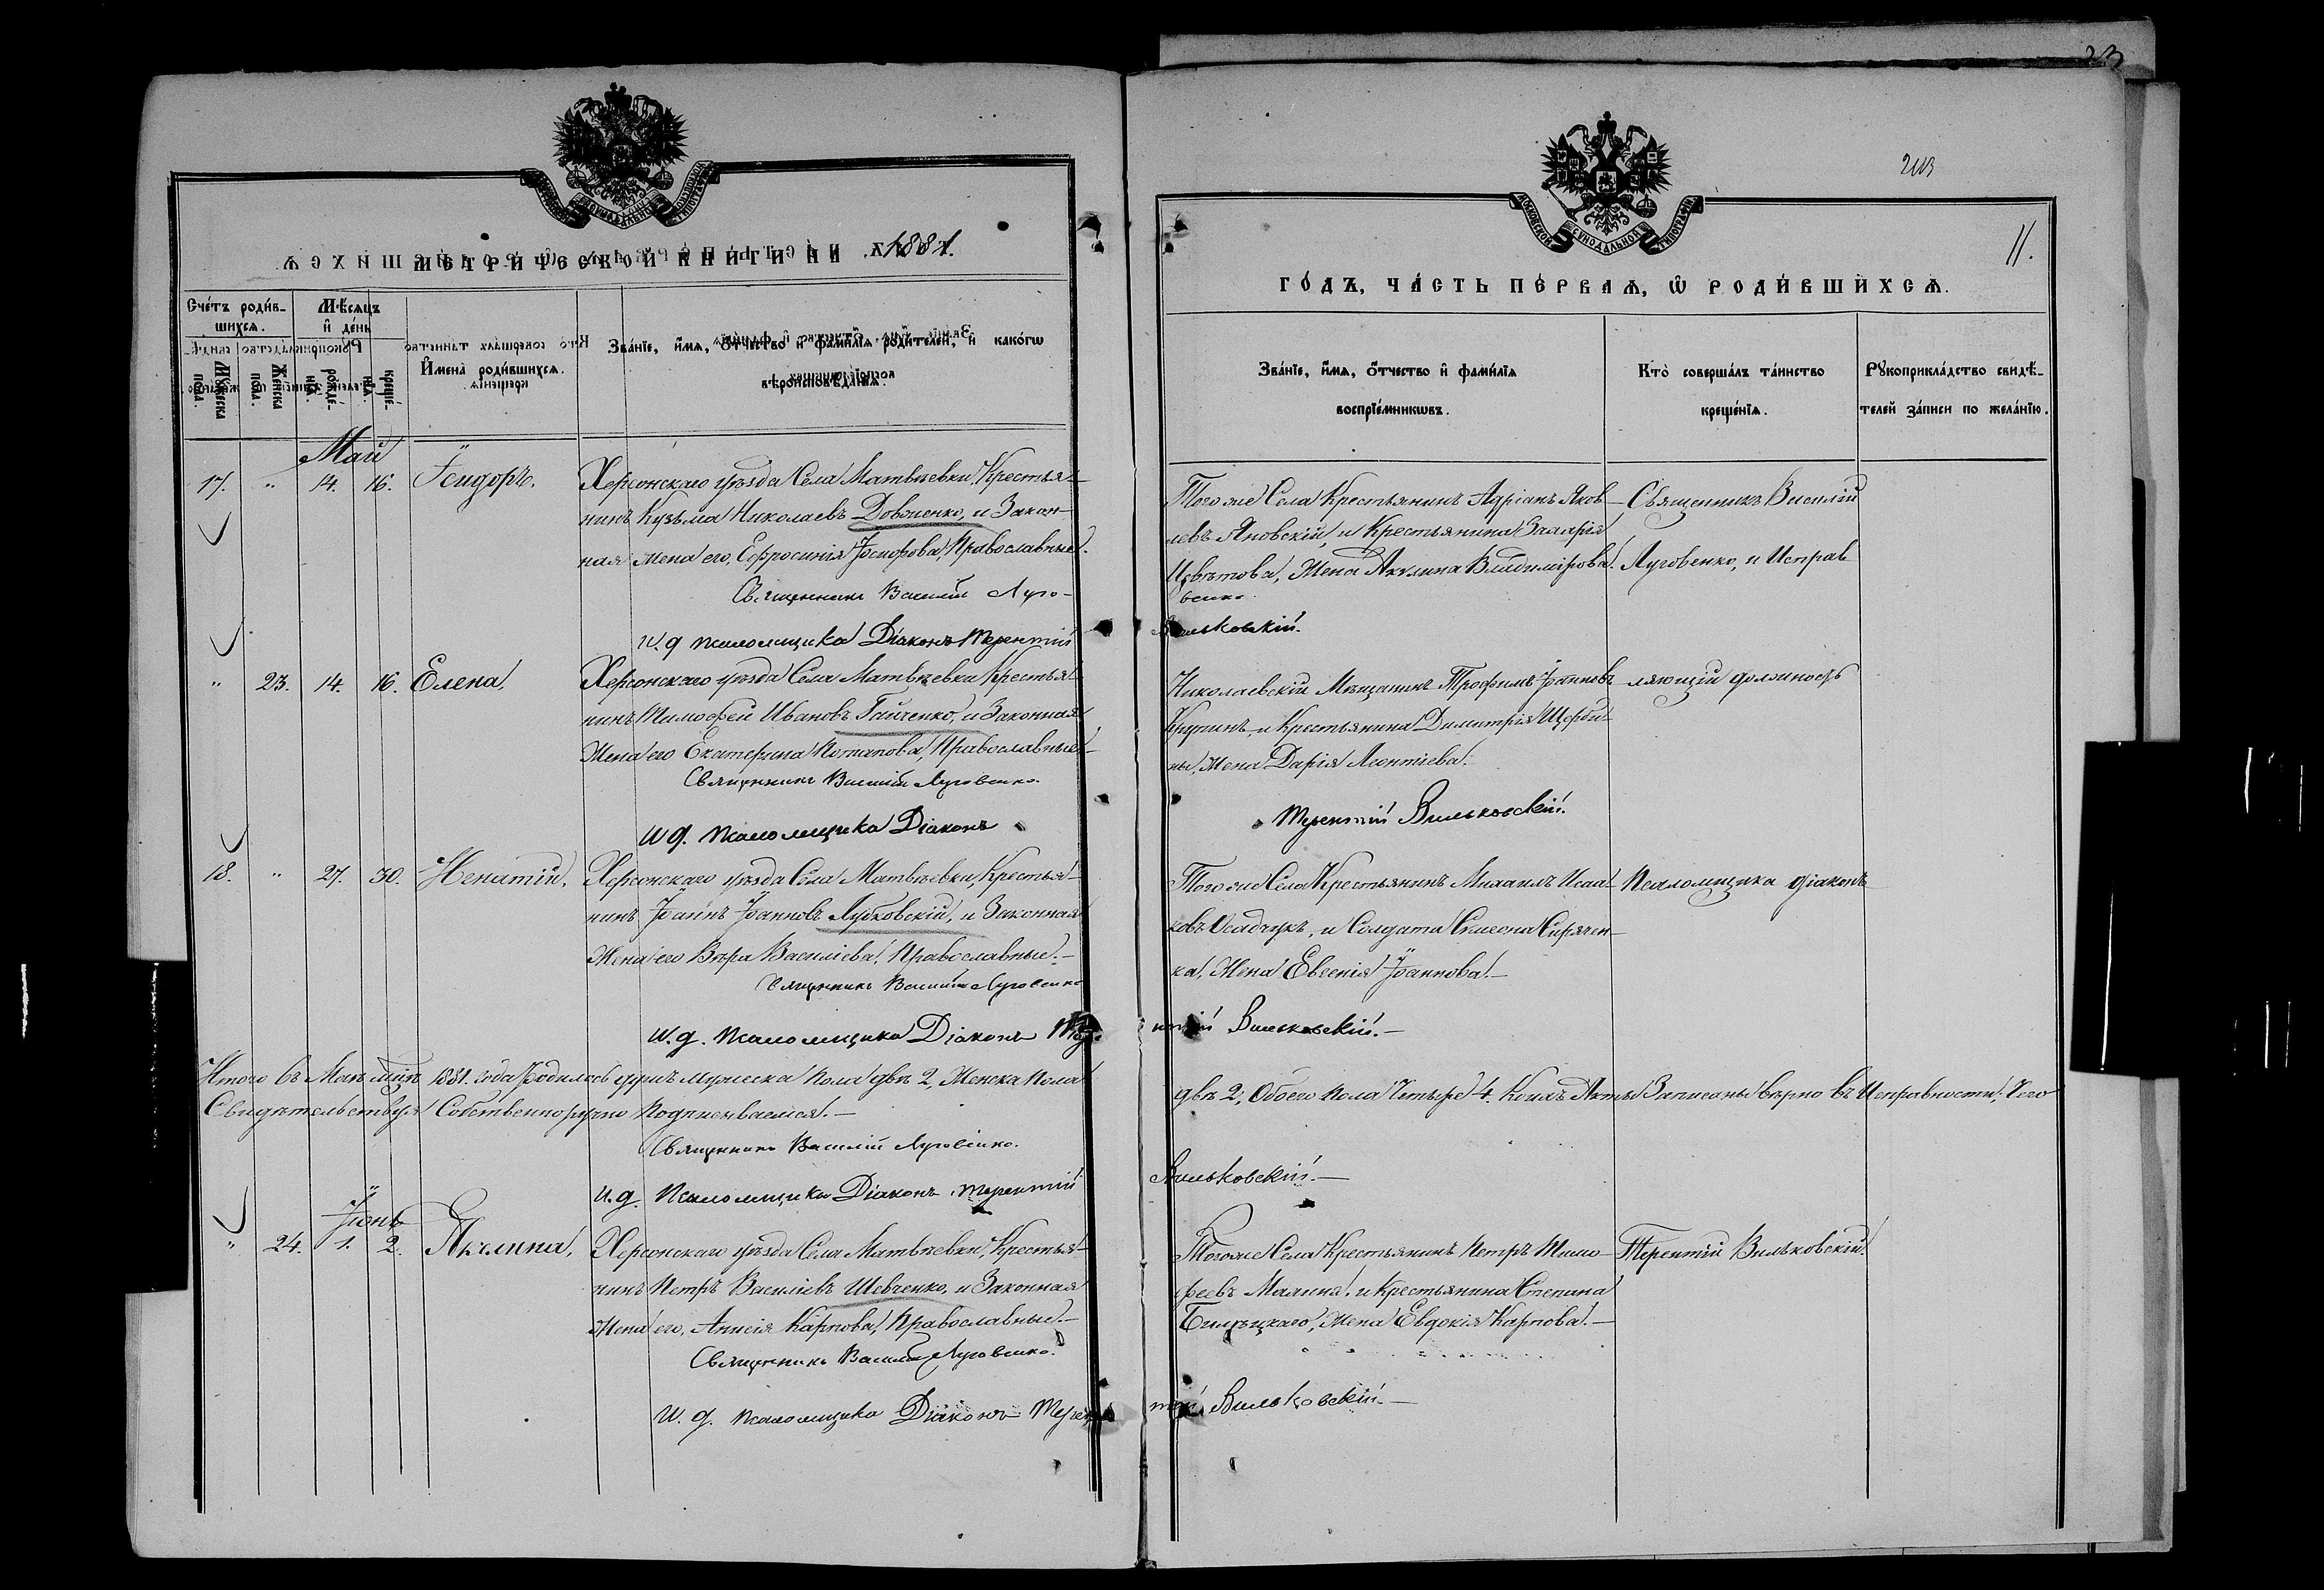 23
203
11.
МЕТРИЧЕСКОЙ КНИГИ НА 1881.
ГОДЪ, ЧАСТЬ ПЕРВАЯ, Ѡ РОДИВШИХСЯ.
Счетъ родив-
шихся.
Мѣсяцъ
и день
Мужеска пола.
Женска пола.
рожде-
нія.
креще-
нія.
Имена родившихся.
Званіе, имя, отчество и фамилія родителей, и какогѡ
вѣроисповѣданія.
Званіе, имя, отчество и фамилія
воспріемникѡвъ.
Кто совершалъ таинство
крещенія.
Рукоприкладство свидѣ-
телей записи по желанію.
Май
17. " 14. 16. Ісидоръ.
Херсонскаго уѣзда Села Матвѣевки, Крестья-
нинъ Кузьма Николаевъ Довженко, и Закон-
ная жена его, Ефросинія Іосифова, Православные.
Священникъ Василій Луго-
венко
И.д псаломщика Діаконъ Терентій
Вильковскій.
Того же Села Крестьянинъ Адріанъ Яков-
левъ Яновскій, и Крестьянина Захарія
Цвѣтова, Жена Акулина Владимірова.
Священникъ Василій
Луговенко, и Исправ
" 23. 14. 16. Елена,
Херсонскаго уѣзда Села Матвѣевки Крестья-
нинъ Тимофей Ивановъ Гайченко, и Законная
Жена его Екатерина Потапова, Православные.-
Священникъ Василій Луговенко.
И д. псаломщика Діаконъ
Терентій Вильковскій.
Николаевскій Мѣщанинъ Трофимъ Іоанновъ
Крупинъ, и Крестьянина Димитрія Щерби-
ны, Жена Дарія Леонтіева.
ляющій должность
18. " 27. 30. Игнатій,
Херсонскаго уѣзда Села Матвѣевки, Крестья-
нинъ Іоаннъ Іоанновъ Лубковскій, и Законная
Жена его Вѣра Василіева, Православные.-
Священникъ Василій Луговенко
И.д. псаломщика Діаконъ Тере-
нтій Вильковскій.-
Того же Села Крестьянинъ Михаилъ Исаа-
ковъ Осадчукъ, и Солдата Симеона Сирячен-
ка, Жена Евгенія Іоаннова.-
Псаломщика діаконъ
Итого въ Маѣ мцѣ 1881. года Родилось душъ мужеска пола двѣ 2, Женска пола
двѣ 2, Обоего пола Четыре 4. Коихъ Акты Записаны вѣрно въ Исправности, Чего
Свидѣтельствуя Собственноручно Подписываемся.-
Священникъ Василій Луговенко.
И.д. Псаломщика Діаконъ Терентій
Вильковскій.-
Іюнь
" 24. 1. 2. Акилина,
Херсонскаго уѣзда Села Матвѣевки, Крестья-
нинъ Петръ Василіевъ Шевченко, и Законная
Жена его, Анисія Карпова, Православные.-
Священникъ Василій Луговенко.
И. д. псаломщика Діаконъ Терен-
тій Вильковскій.-
Того же Села Крестьянинъ Петръ Тимо-
феевъ Малина, и Крестьянина Степана
Билецкаго, Жена Евдокія Карпова.-
Терентій Вильковскій.